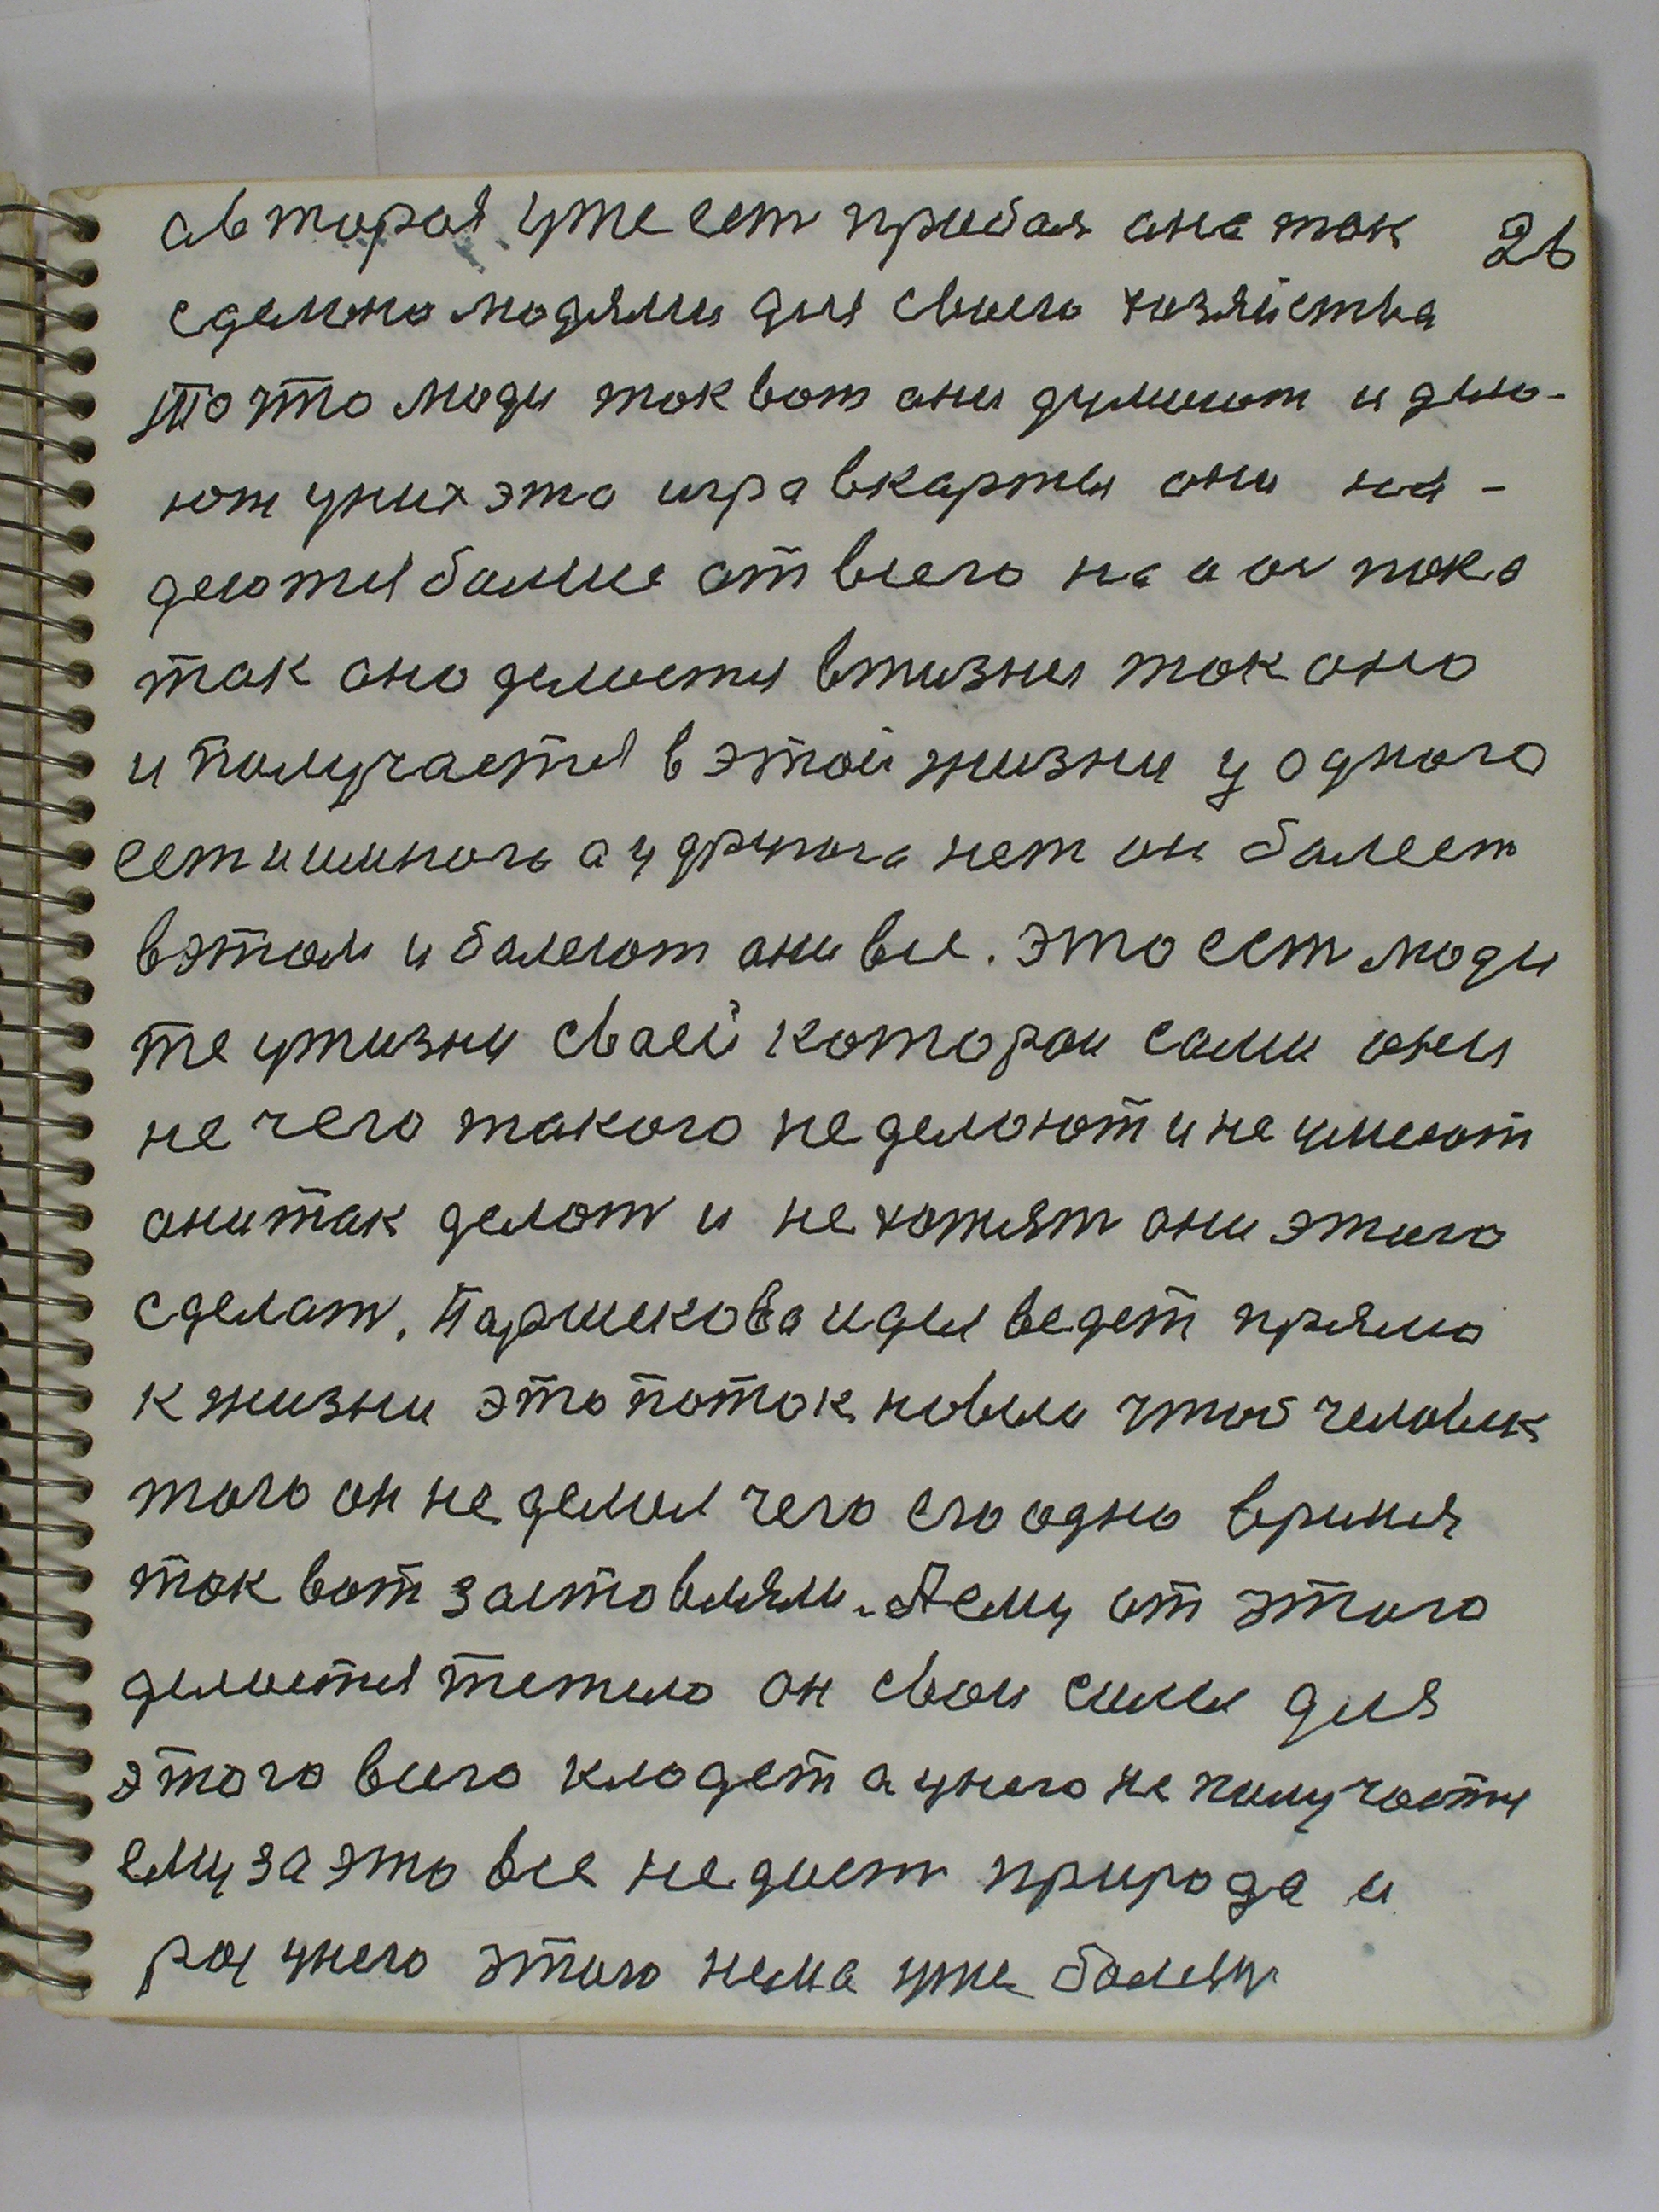 авторая уже ест прибая ана так 26
сделана людями для своего хозяйства
то что люди так вот они думают и дела-
ют у них это игра в карты они на-
деются балше от всего на пока
так оно делается в жизни так оно
и получается в этой жизни у одного
ест и много а у другога нет он балеет
в этом и балеют они все. это ест люди
те у жизни сваей каторои сами они
не чего такого не делают и не умеют
они так делат и не хотят они этого
сделат. Паршекова идея ведет прямо
к жизни это поток новым чтоб человек
того он не делал чего его одно время
так вот заставляли. А ему от этого
делается тежело он свои силы для
этого всего кладет а у него не получается
ему за это все не дает природа и
раз у него этого нема уже